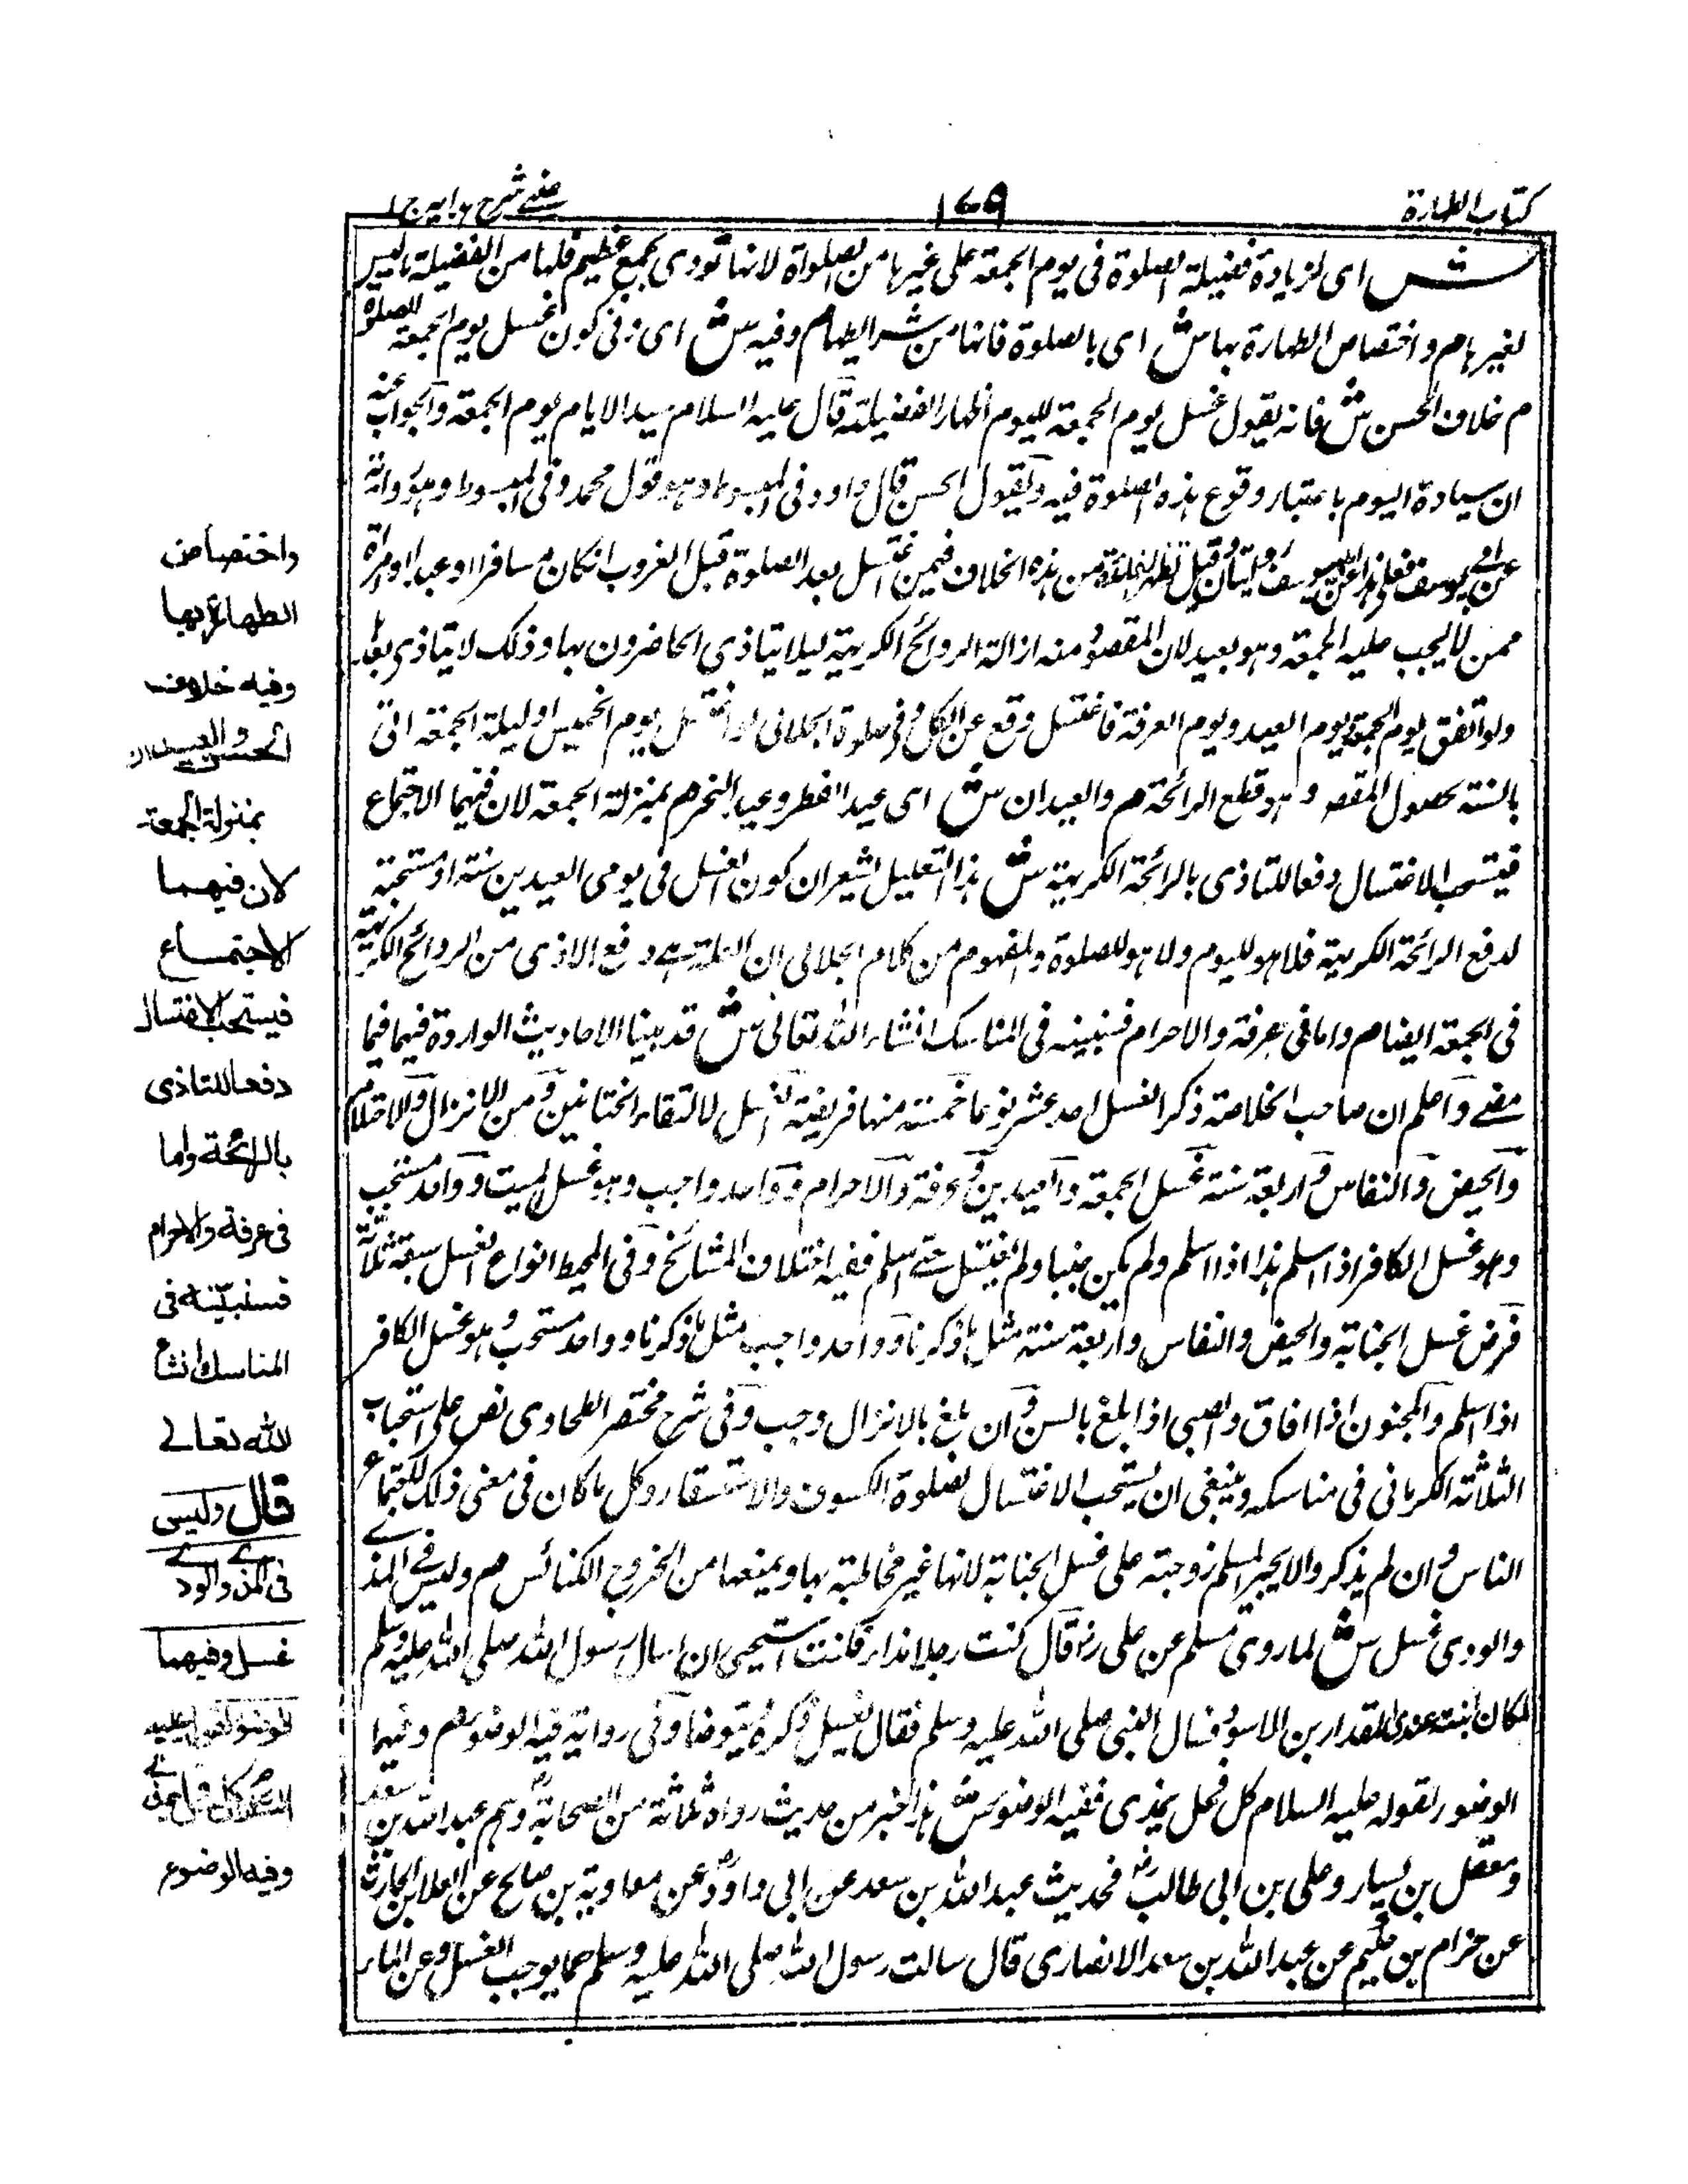 كتاب الطهارة
١٦٩
عینی شرح ہدایہ ج ۱
ش اى لزيادة فضيلة الصلوة فى يوم الجمعة على غيرها من الصلواة لانها تؤدى بجمع عظيم فلها من الفضيلة ماليس
لغيرها م واختصاص الطهارة بها ش اى بالصلوة فانها من شرايطها م وفيه ش اى فى كون غسل يوم الجمعة للصلوة
م خلاف الحسن ش فانه يقول غسل يوم الجمعة لليوم اظهارا لفضيلته قال عليه السلام سيد الايام يوم الجمعة والجواب عنه
ان سيادة اليوم باعتبار وقوع هذه الصلوة فيه وبقول الحسن قال داود وفى المبسوط وهو قول محمد وفى المبسوط وهو رواية
عن ابى يوسف فعلى هذا عن ابى يوسف روايتان وقيل تظهر الفائدة من هذه الخلاف فيمن اغتسل بعد الصلوة قبل الغروب ان كان مسافرا او عبدا او امراة
ممن لا يجب عليه الجمعة وهو بعيد لان المقصود منه ازالة الروائح الكريهة ليلا يتاذى الحاضرون بها وذلك لا يتاذى بعدها
ولو اتفق يوم الجمعة ويوم العيد ويوم العرفة فاغتسل وقع عن الكل وفى صلوة الجلالى لو اغتسل يوم الخميس او ليلة الجمعة اتى
بالسنة لحصول المقصود وهو قطع الرائحة م والعيدان ش اى عيد الفطر وعيد النحر م بمنزلة الجمعة لان فيهما الاجتماع
فيستحب الاغتسال دفعا للتاذى بالرائحة الكريهة ش هذا التعليل يشعر ان كون الغسل فى يومى العيدين سنة او مستحبة
لدفع الرائحة الكريهة فلا هو لليوم ولا هو للصلوة والمفهوم من كلام الجلالى ان العلة هے دفع الاذى من الروائح الكريهة
فى الجمعة ايضا م واما فى عرفة والاحرام فسنبينه فى المناسك انشاء الله تعالى ش قد بينا الاحاديث الواردة فيهما فيما
مضے واعلم ان صاحب الخلاصة ذكر الغسل احد عشر نوعا خمسة منها فريضة الغسل لالتقاء الختانين ومن الانزال والاحتلام
والحيض والنفاس واربعة سنة غسل الجمعة والعيدين وعرفة والاحرام وواحد واجب وهو غسل الميت وواحد مستحب
وهو غسل الكافر اذا اسلم هذا اذا اسلم ولم يكن جنبا ولم يغتسل حتے اسلم ففيه اختلاف المشائخ وفى المحيط انواع الغسل تسعة ثلاثة
فرض غسل الجنابة والحيض والنفاس واربعة سنة مثل ما ذكرنا وواحد واجب مثل ما ذكرنا وواحد مستحب وهو غسل الكافر
اذا اسلم والمجنون اذا افاق والصبى اذا بلغ بالسن وان بلغ بالانزال وجب وفى شرح مختصر الطحاوى نص على استحباب
الثلاثة الكرمانى فى مناسكه وينبغى ان يستحب الاغتسال لصلوة الكسوف والاستسقاء وكل ما كان فى معنى ذلك لاجتماع
الناس وان لم يذكر ولا يجبر المسلم زوجته على غسل الجنابة لانها غير مخاطبة بها ويمنعها من الخروج الكنائس م وليس فى المذے
والودى غسل ش لما روى مسلم عن على رض قال كنت رجلا مذاء فكنت استحيى ان اسال رسول الله صلى الله عليه وسلم
لمكان ابنته عندى فامرت المقداد بن الاسود فسال النبى صلى الله عليه وسلم فقال يغسل ذكره ويتوضا وفى رواية فيه الوضوء م وفيهما
الوضوء لقوله عليه السلام كل فحل يمذى ففيه الوضوء ش هذا الخبر من حديث رواه ثلاثة من الصحابة وهم عبد الله بن سعد
ومعقل بن يسار وعلى بن ابى طالب رض فحديث عبد الله بن سعد عن ابى داود عن معاوية بن صالح عن العلا بن الحارث
عن حزام بن حكيم عن عبد الله بن سعد الانصارى قال سالت رسول الله صلى الله عليه وسلم عما يوجب الغسل وعن الماء
واختصاص
الطهارة بها
وفيه خلاف
الحسن والعيدان
بمنزلة الجمعة
لان فيهما
الاجتماع
فيستحب الاغتسال
دفعا للتاذى
بالرائحة واما
فى عرفة والاحرام
فسنبيّنه فى
المناسك انشاء
الله تعالے
قال وليس
فى المذے والودے
غسل وفيهما
الوضوء لقوله عليه
السلام كل فحل يمذى
وفيه الوضوء